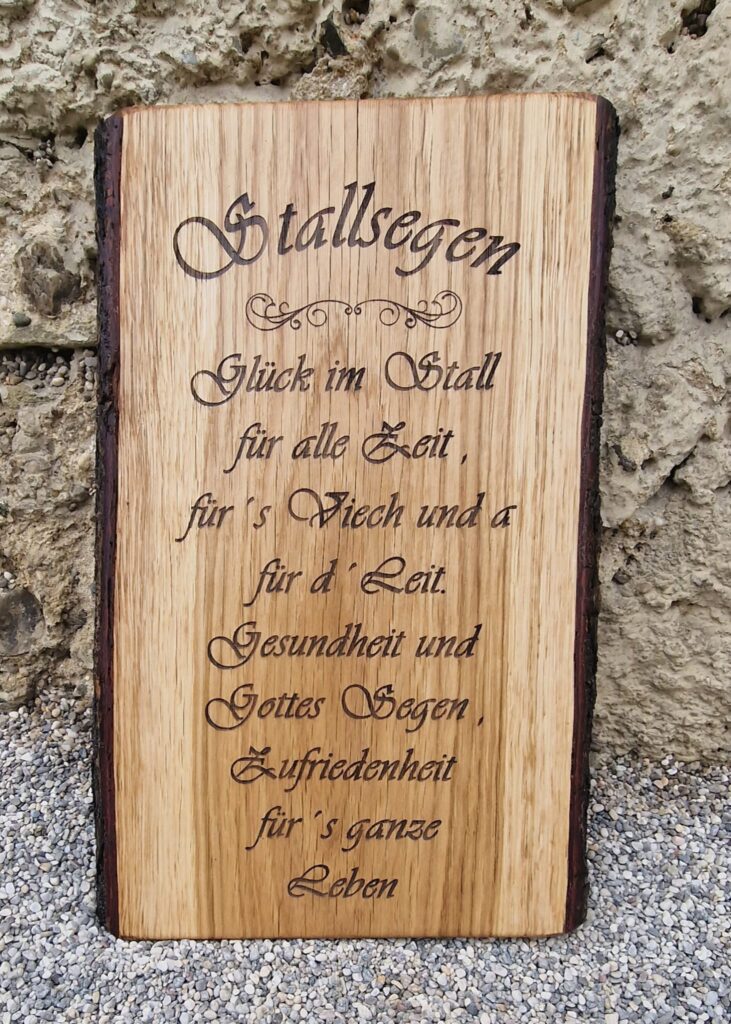 Stallsegen
Glück im Stall
für alle Zeit ,
für´s Viech und a
für d´Leit.
Gesundheit und
Gottes Segen ,
Zufriedenheit
für´s ganze
Leben